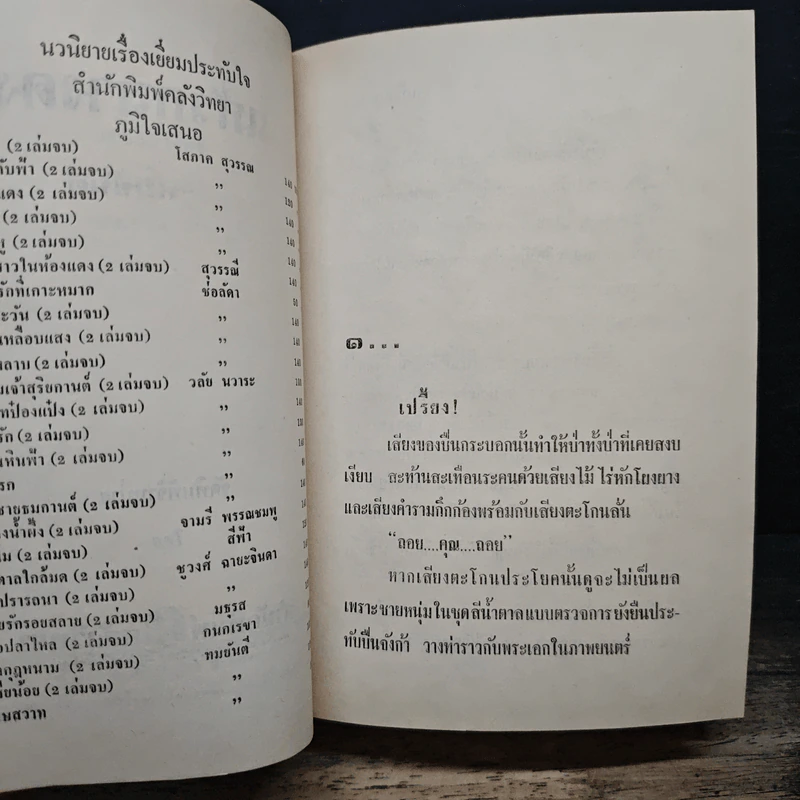 นวนิยายเรื่องเยี่ยมประทับใจ
สำนักพิมพ์คลังวิทยา
ภูมิใจเสนอ
(2 เล่มจบ) โสภาค สุวรรณ
กับฟ้า (2 เล่มจบ) ,, 140
แดง (2 เล่มจบ) ,, 120
(2 เล่มจบ) ,, 140
(2 เล่มจบ) ,, 140
าวในห้องแดง (2 เล่มจบ) สุวรรณี 140
รักที่เกาะหมาก ช่อลัดา
ะวัน (2 เล่มจบ) ,,
นเหลือบแสง (2 เล่มจบ) ,,
ลาบ (2 เล่มจบ) ,,
มเจ้าสุริยกานต์ (2 เล่มจบ) วลัย นวาระ
ทป๋องแป๋ง (2 เล่มจบ) ,,
รัก (2 เล่มจบ) ,,
นหินฟ้า (2 เล่มจบ) ,,
รก ,,
ชายธมกานต์ (2 เล่มจบ) ,,
งน้ำผึ้ง (2 เล่มจบ) จามรี พรรณชมพู
ม (2 เล่มจบ) สีฟ้า
ตาลใกล้มด (2 เล่มจบ) ชูวงศ์ ฉายะจินดา
ปรารถนา (2 เล่มจบ) ,,
ยรักรอยสลาย (2 เล่มจบ) มธุรส
อปลาไหล (2 เล่มจบ) กนกเรขา
กุฎหนาม (2 เล่มจบ) ทมยันตี
ัยน้อย (2 เล่มจบ) ,,
ษสวาท ,,
๑...
เปรี้ยง!
เสียงของปืนกระบอกนั้นทำให้ป่าทั้งป่าที่เคยสงบ
เงียบ สะท้านสะเทือนระคนด้วยเสียงไม้ ไร่หักโยงยาง
และเสียงคำรามกึกก้องพร้อมกับเสียงตะโกนลั่น
“ถอย....คุณ....ถอย”
หากเสียงตะโกนประโยคนั้นดูจะไม่เป็นผล
เพราะชายหนุ่มในชุดสีน้ำตาลแบบตรวจการยังยืนประ-
ทับปืนจังก้า วางท่าราวกับพระเอกในภาพยนตร์